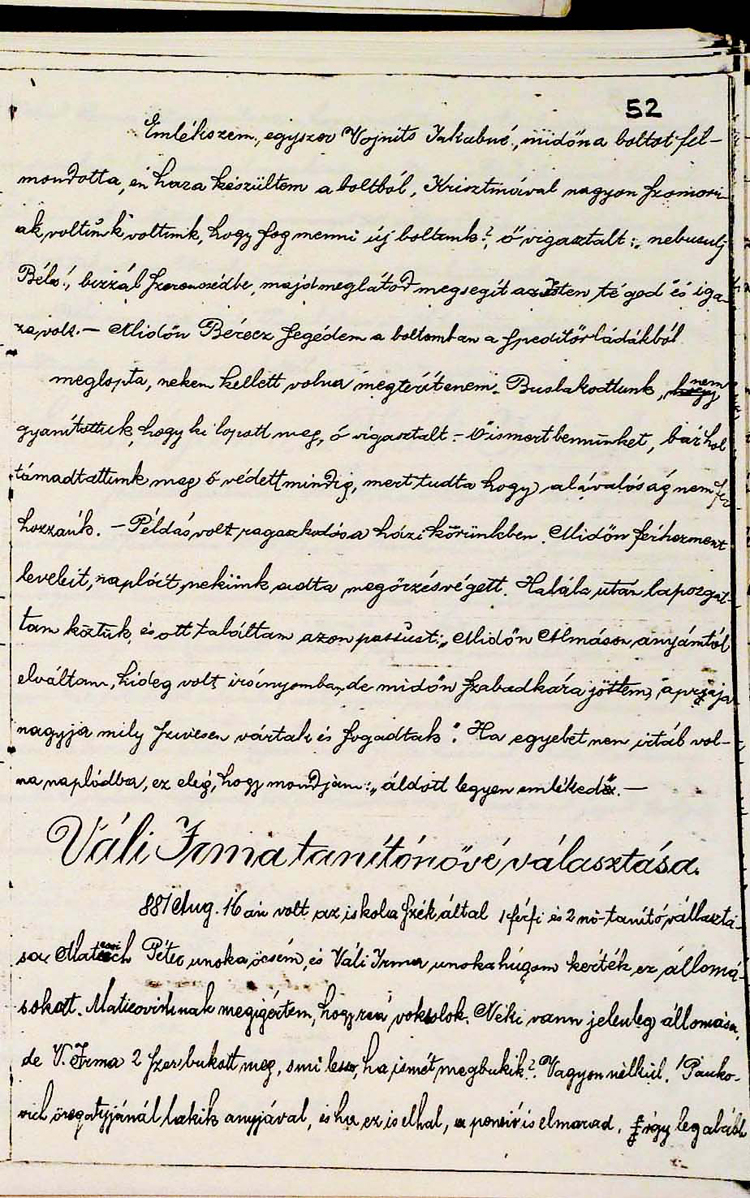 52
Emlékszem, egyszer Vojnits Jakabné, midőn a boltot fel-
mondotta, én haza készültem a boltból, Krisztinával nagyon szomorú-
ak voltunk voltunk, hogy fog menni új boltunk? ő vigasztalt: „nebusulj
Béla!, bizzál szerencsédbe, majd meglátod megsegít az Isten téged" és iga-
za volt. — Midőn Bérecz segédem a boltomban a speditőr ládákból
meglopta, nekem kellett volna megterítenem. Buslakodtunk, nem
gyanítottuk, hogy ki lopott meg, ő vigasztalt – Ő ismert bennünket, bár hol
támadtattunk meg ő védett mindig, mert tudta hogy alávalóság nem fér
hozzánk. – Példás volt ragaszkodása házi körünkben. Midőn férhezment
leveleit, naplóit, nekünk adta megőrzés végett. Halála után lapozgat-
tam köztük, és ott találtam azon passust: „Midőn Almáson anyámtól
elváltam, hideg volt irányomban, de midőn Szabadkára jöttem, apraja
nagyja mily szivesen vártak és fogadtak". Ha egyebet nem irtál vol-
na naplódba, ez elég, hogy mondjam: „áldott legyen emléked". —
Váli Irma tanítónővé választása.
881 Aug. 16 án volt az iskola szék által 1 férfi és 2 nő-tanító választá-
sa Péter unoka öcsém, és Váli Irma unoka húgom kérték ez állomá-
sokatt. Maticovichnak megigértem, hogy reá vokslok. Néki vann jelenleg állomása,
de V. Irma 2 szer bukott meg, s mi lesz, ha ismét megbukik? Vagyon nélkül, Pauko-
vich öregatyjánál lakik anyjával, és ha ez is elhal, a penzió is elmarad, így legalább